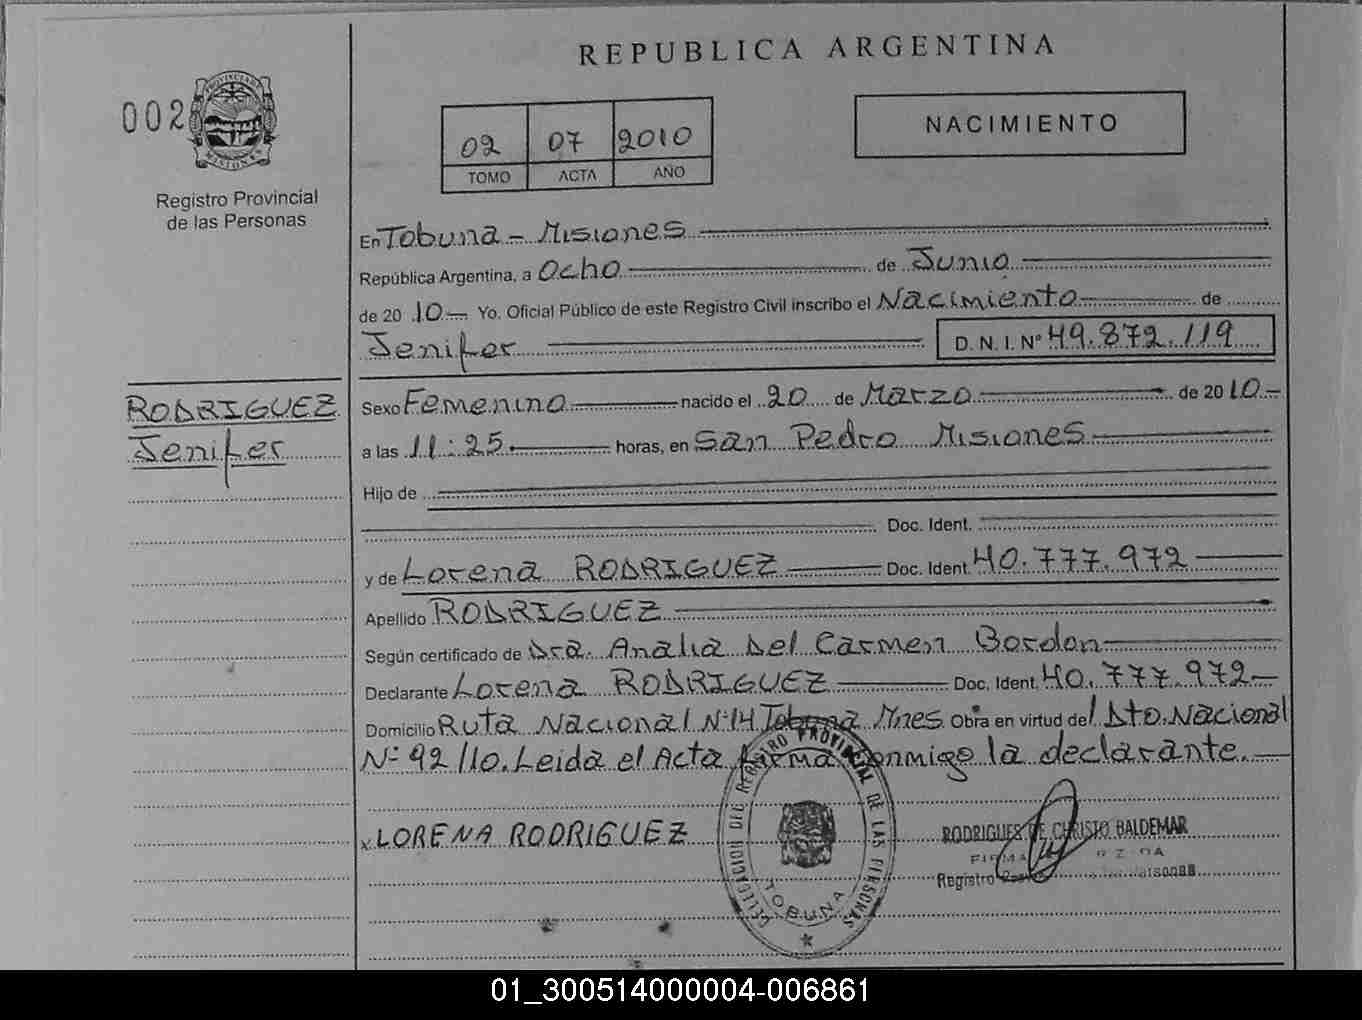 REPUBLICA ARGENTINA
002
PROVINCIA DE MISIONES
Registro Provincial
de las Personas
02 07 2010
TOMO ACTA AÑO
NACIMIENTO
En Tobuna - Misiones
República Argentina, a Ocho de Junio
de 20 10 Yo. Oficial Público de este Registro Civil inscribo el Nacimiento de
Jenifer D. N. I. Nº 49.872.119
RODRIGUEZ
Jenifer
Sexo Femenino nacido el 20 de Marzo de 20 10.-
a las 11:25.- horas, en San Pedro Misiones
Hijo de
Doc. Ident.
y de Lorena RODRIGUEZ Doc. Ident. 40.777.972
Apellido RODRIGUEZ
Según certificado de Dra. Analia Del Carmen Bordon
Declarante Lorena RODRIGUEZ Doc. Ident. 40.777.972
Domicilio Ruta Nacional Nº14 Tobuna Mnes. Obra en virtud del Dto. Nacional
Nº 92/10. Leida el Acta firma conmigo la declarante.
x LORENA RODRIGUEZ
DELEGACION DEL REGISTRO PROVINCIAL DE LAS PERSONAS
TOBUNA
RODRIGUES DE CHRISTO BALDEMAR
FIRMA
Registro
01_300514000004-006861